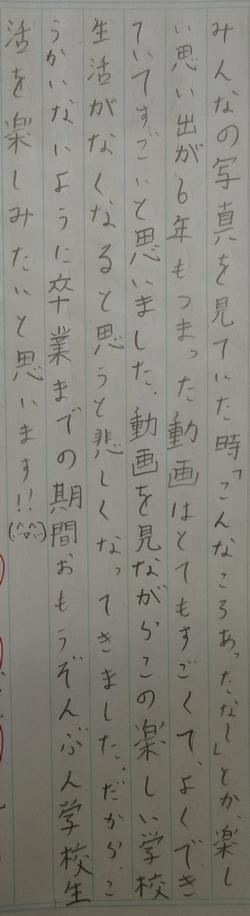 みんなの写真を見ていた時「こんなころあったなー」とか、楽し
い思い出が6年もつまった動画はとてもすごくて、よくでき
ていてすごいと思いました。動画を見ながらこの楽しい学校
生活がなくなると思うと悲しくなってきました。だから、こ
うかいないように卒業までの期間おもうぞんぶん学校生
活を楽しみたいと思います!!(^o^)